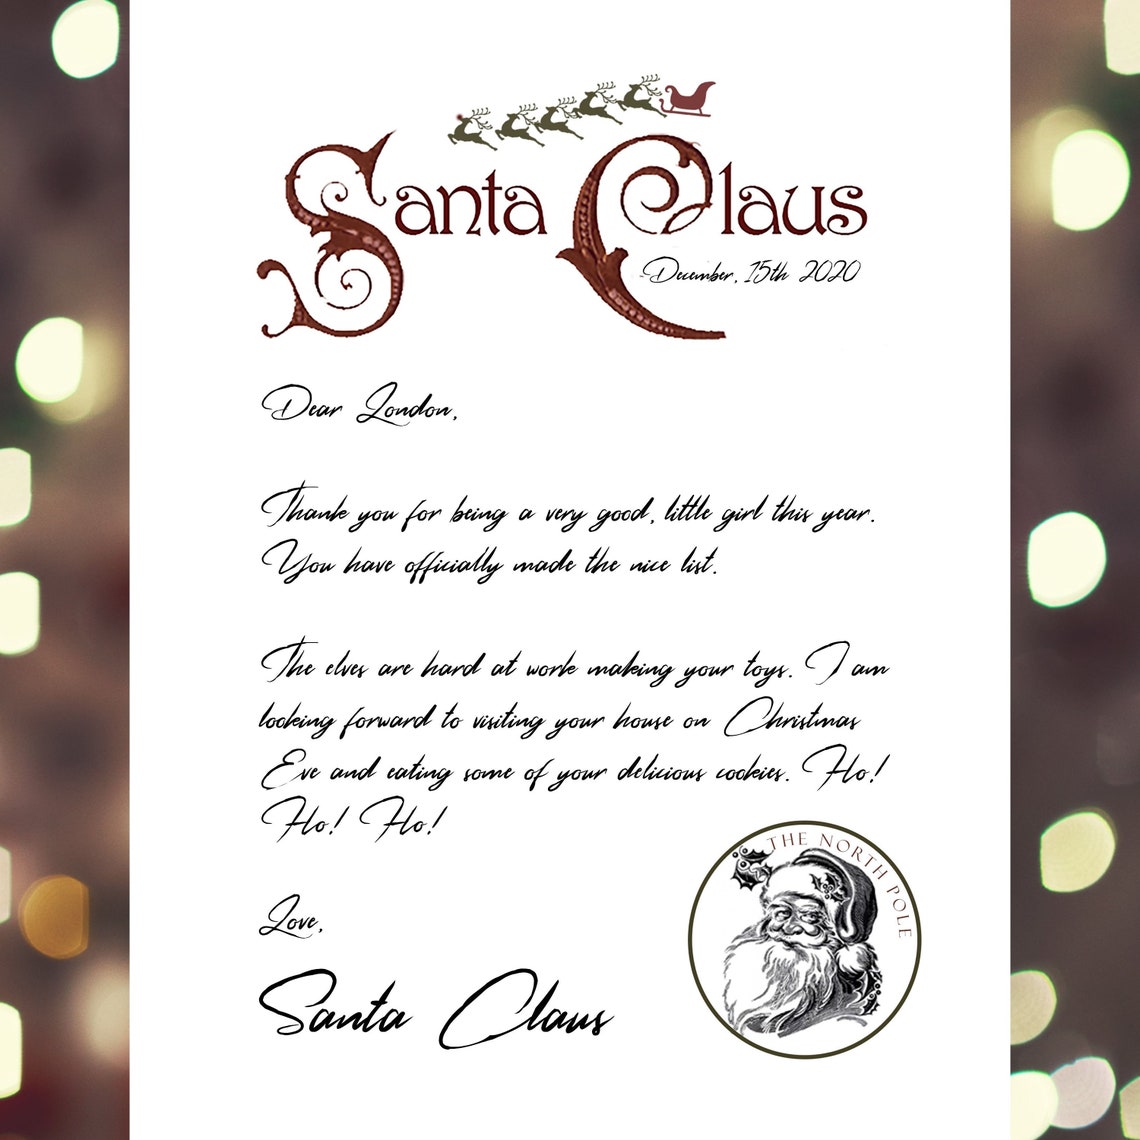 Santa Claus
December, 15th 2020
Dear London,
Thank you for being a very good, little girl this year.
You have officially made the nice list.
The elves are hard at work making your toys. I am
looking forward to visiting your house on Christmas
Eve and eating some of your delicious cookies. Ho!
Ho! Ho!
Love,
Santa Claus
THE NORTH POLE